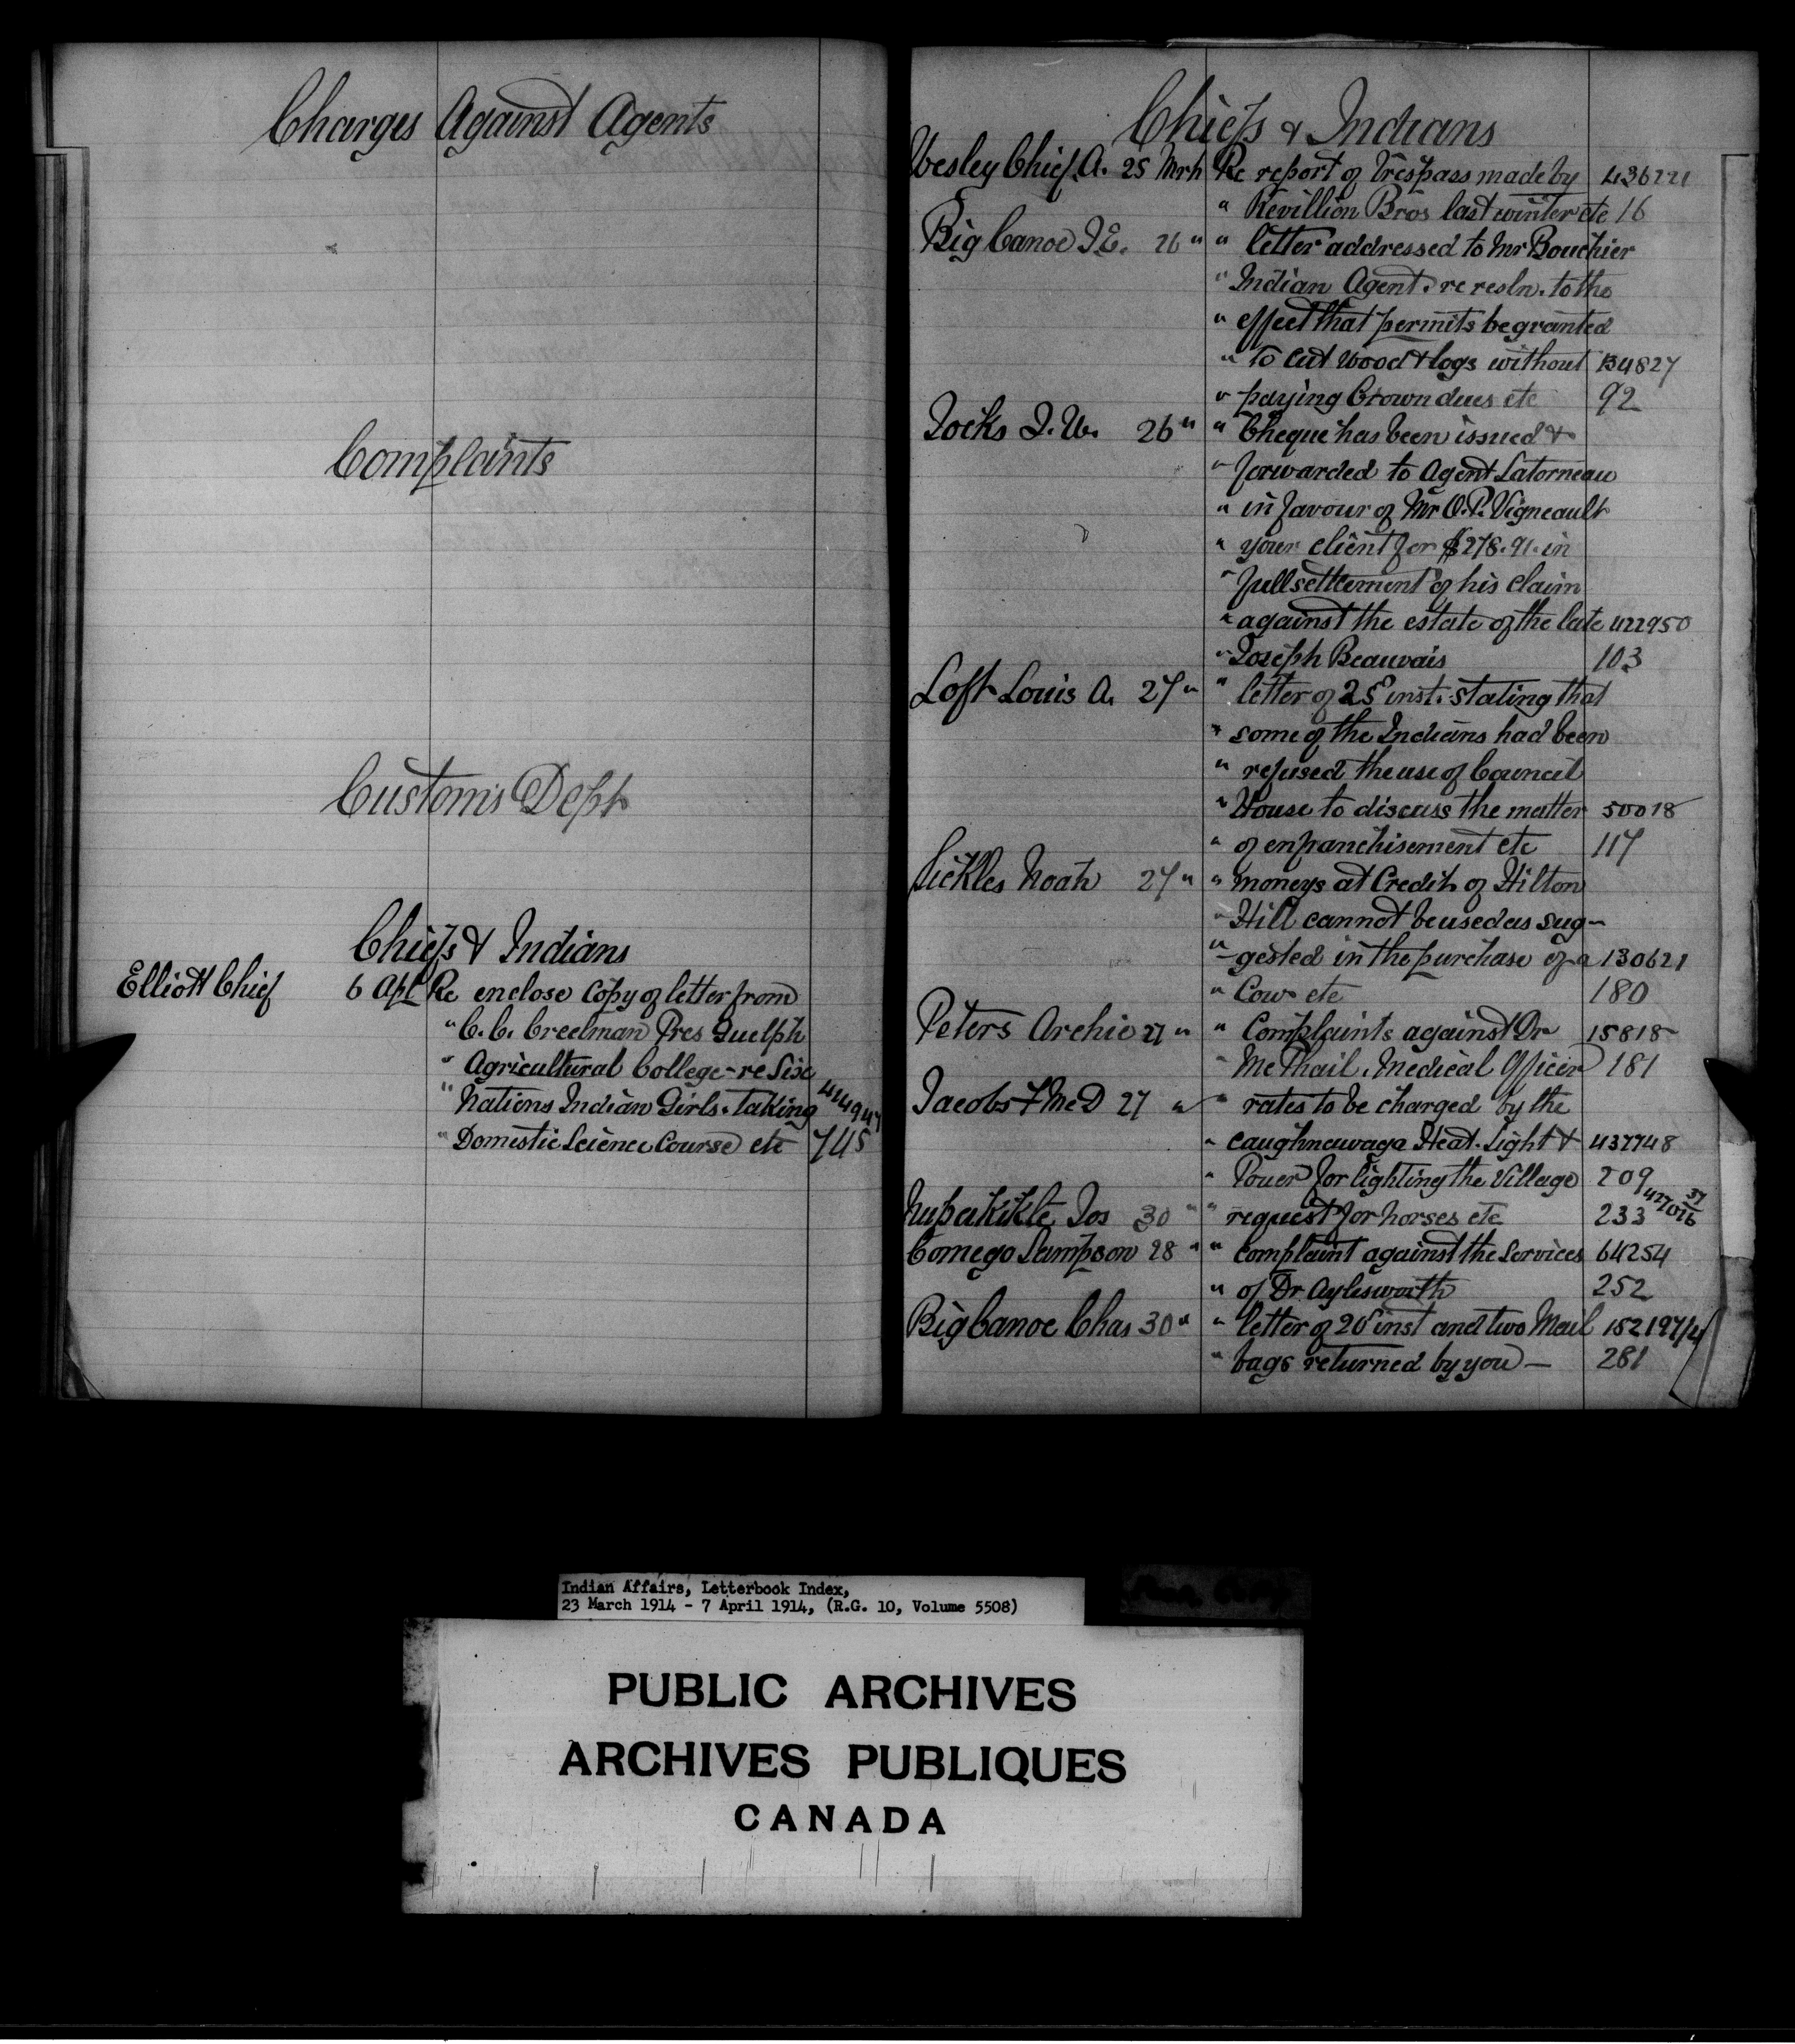 Charges Against Agents
Complaints
Customs Dept
Chiefs & Indians
Elliott Chief 6 Apl Re enclose copy of letter from
" C. C. Creelman Pres Guelph
" Agricultural College - re Six
" Nations Indian Girls. taking
" Domestic Science Course etc 745
Chiefs & Indians
Wesley Chief. A. 25 Mrh Re report of Trespass made by 436221
" Revillion Bros last winter etc 16
Big Canoe J. E. 26 " " letter addressed to Mr Bouchier
" Indian Agent. re resln. to the
" effect that permits be granted
" to cut wood & logs without 134827
" paying Crown dues etc 92
Jocks J. W. 26 " " Cheque has been issued &
" forwarded to Agent Latorneau
" in favour of Mr O. P. Vigneault
" your client for $278.91. in
" full settlement of his claim
" against the estate of the late 422950
" Joseph Beauvais 103
Loft Louis A. 27 " " letter of 25 inst. stating that
" some of the Indians had been
" refused the use of Council
" House to discuss the matter 50018
" of enfranchisement etc 117
Sickles Noah 27 " " moneys at Credit of Hilton
" Hill cannot be used as sug-
" -gested in the purchase of a 130621
" Cow etc 180
Peters Archie 27 " " Complaints against Dr 15818
" McPhail. Medical Officer 181
Jacobs F McD 27 " " rates to be charged by the
" Caughnawaga Heat. Light & 437748
" Power for lighting the Village 209
Jos 30 " " request for horses etc 233
Comego Sampson 28 " " complaint against the Services 64254
" of Dr Aylesworth 252
Big Canoe Chas 30 " " letter of 20 inst and two Mail
" bags returned by you — 281
Indian Affairs, Letterbook Index,
23 March 1914 - 7 April 1914, (R.G. 10, Volume 5508)
PUBLIC ARCHIVES
ARCHIVES PUBLIQUES
CANADA